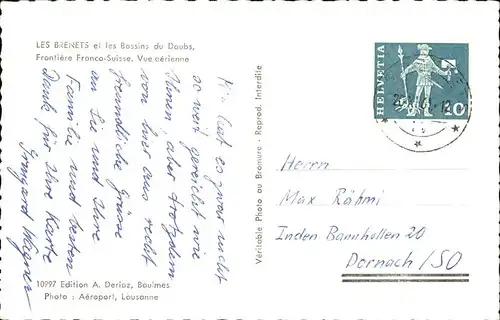 LES BRENETS et les Bassins du Doubs,
Frontière Franco-Suisse. Vue aérienne
Mir hat es zwar nicht
so weit gereicht wie
Ihnen, aber trotzdem
von hier aus recht
freundliche Grüsse
an Sie und Ihre
Familie und besten
Dank für Ihre Karte
Irmgard Wagner
10997 Edition A. Deriaz, Baulmes
Photo : Aéroport, Lausanne
Véritable Photo au Bromure - Reprod. Interdite
HELVETIA
10
Herrn
Max Rähmi
In den Bannhollen 20
Dornach/SO